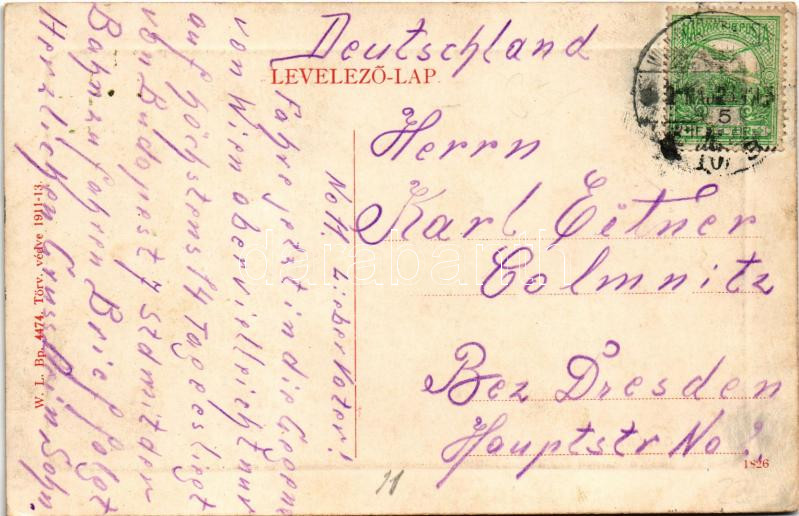 Deutschland
LEVELEZŐ-LAP
MAGYAR KIR. POSTA
5
Herrn
Karl Eitner
Colmnitz
Bez Dresden
Hauptstr No
1826
11
W. L. Bp. 4474. Törv. védve 1911-13.
No 14. Lieber Vater!
Fahre jetzt in die Gegend
von Wien aber vielleicht nur
auf höchstens 14 Tage es liegt
von Budapest 7 Std mit der
Bahn zu fahren Brief folgt
Herzlichen Gruss Dein Sohn.
darabanth